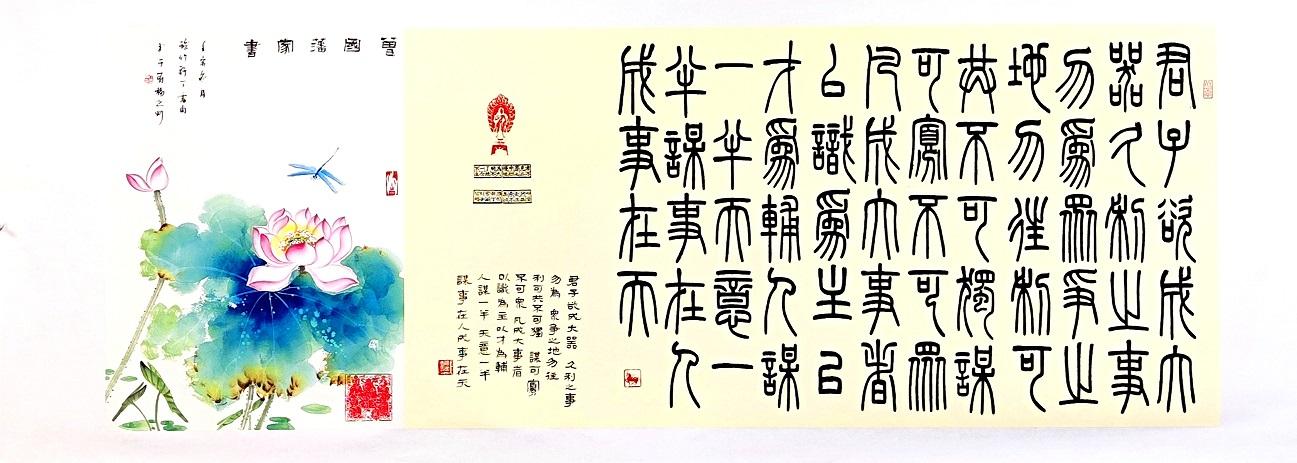 君子欲成大
器久利之事
勿為眾爭之
地勿往利可
共不可獨謀
可寡不可眾
凡成大事者
以識為主以
才為輔人謀
一半天意一
半謀事在人
成事在天
君子欲成大器 久利之事
勿為 衆爭之地勿往
利可共不可獨 謀可寡
不可衆 凡成大事者
以識為主以才為輔
人謀一半天意一半
謀事在人成事在天
曾國藩家書